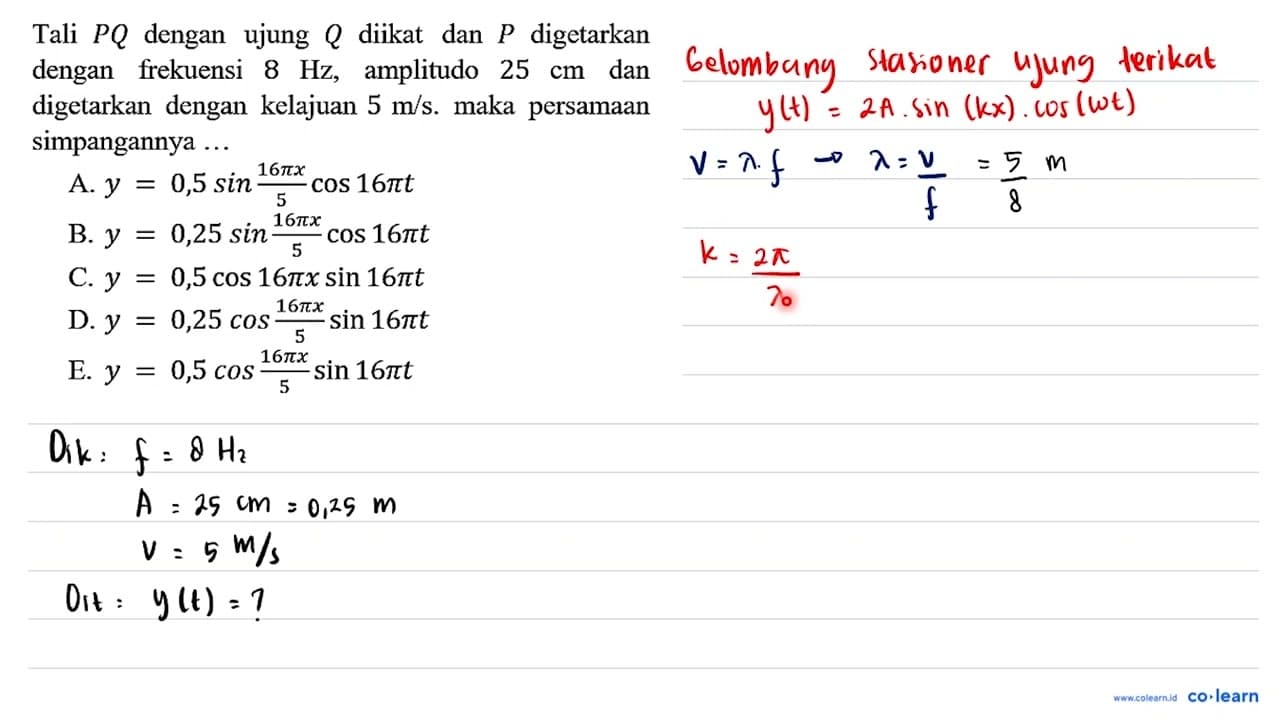 Tali PQ dengan ujung Q diikat dan P digetarkan
dengan frekuensi 8 Hz, amplitudo 25 cm dan
digetarkan dengan kelajuan 5 m/s. maka persamaan
simpangannya …
A. y = 0,5 sin 16πx/5 cos 16πt
B. y = 0,25 sin 16πx/5 cos 16πt
C. y = 0,5 cos 16πx sin 16πt
D. y = 0,25 cos 16πx/5 sin 16πt
E. y = 0,5 cos 16πx/5 sin 16πt
Dik: f = 8 Hz
A = 25 cm = 0,25 m
V = 5 m/s
Dit: y(t) = ?
Gelombang stasioner ujung terikat
y(t) = 2A . sin (kx) . cos (ωt)
V = λ . f → λ = V/f = 5/8 m
k = 2π/λ
www.colearn.id co·learn